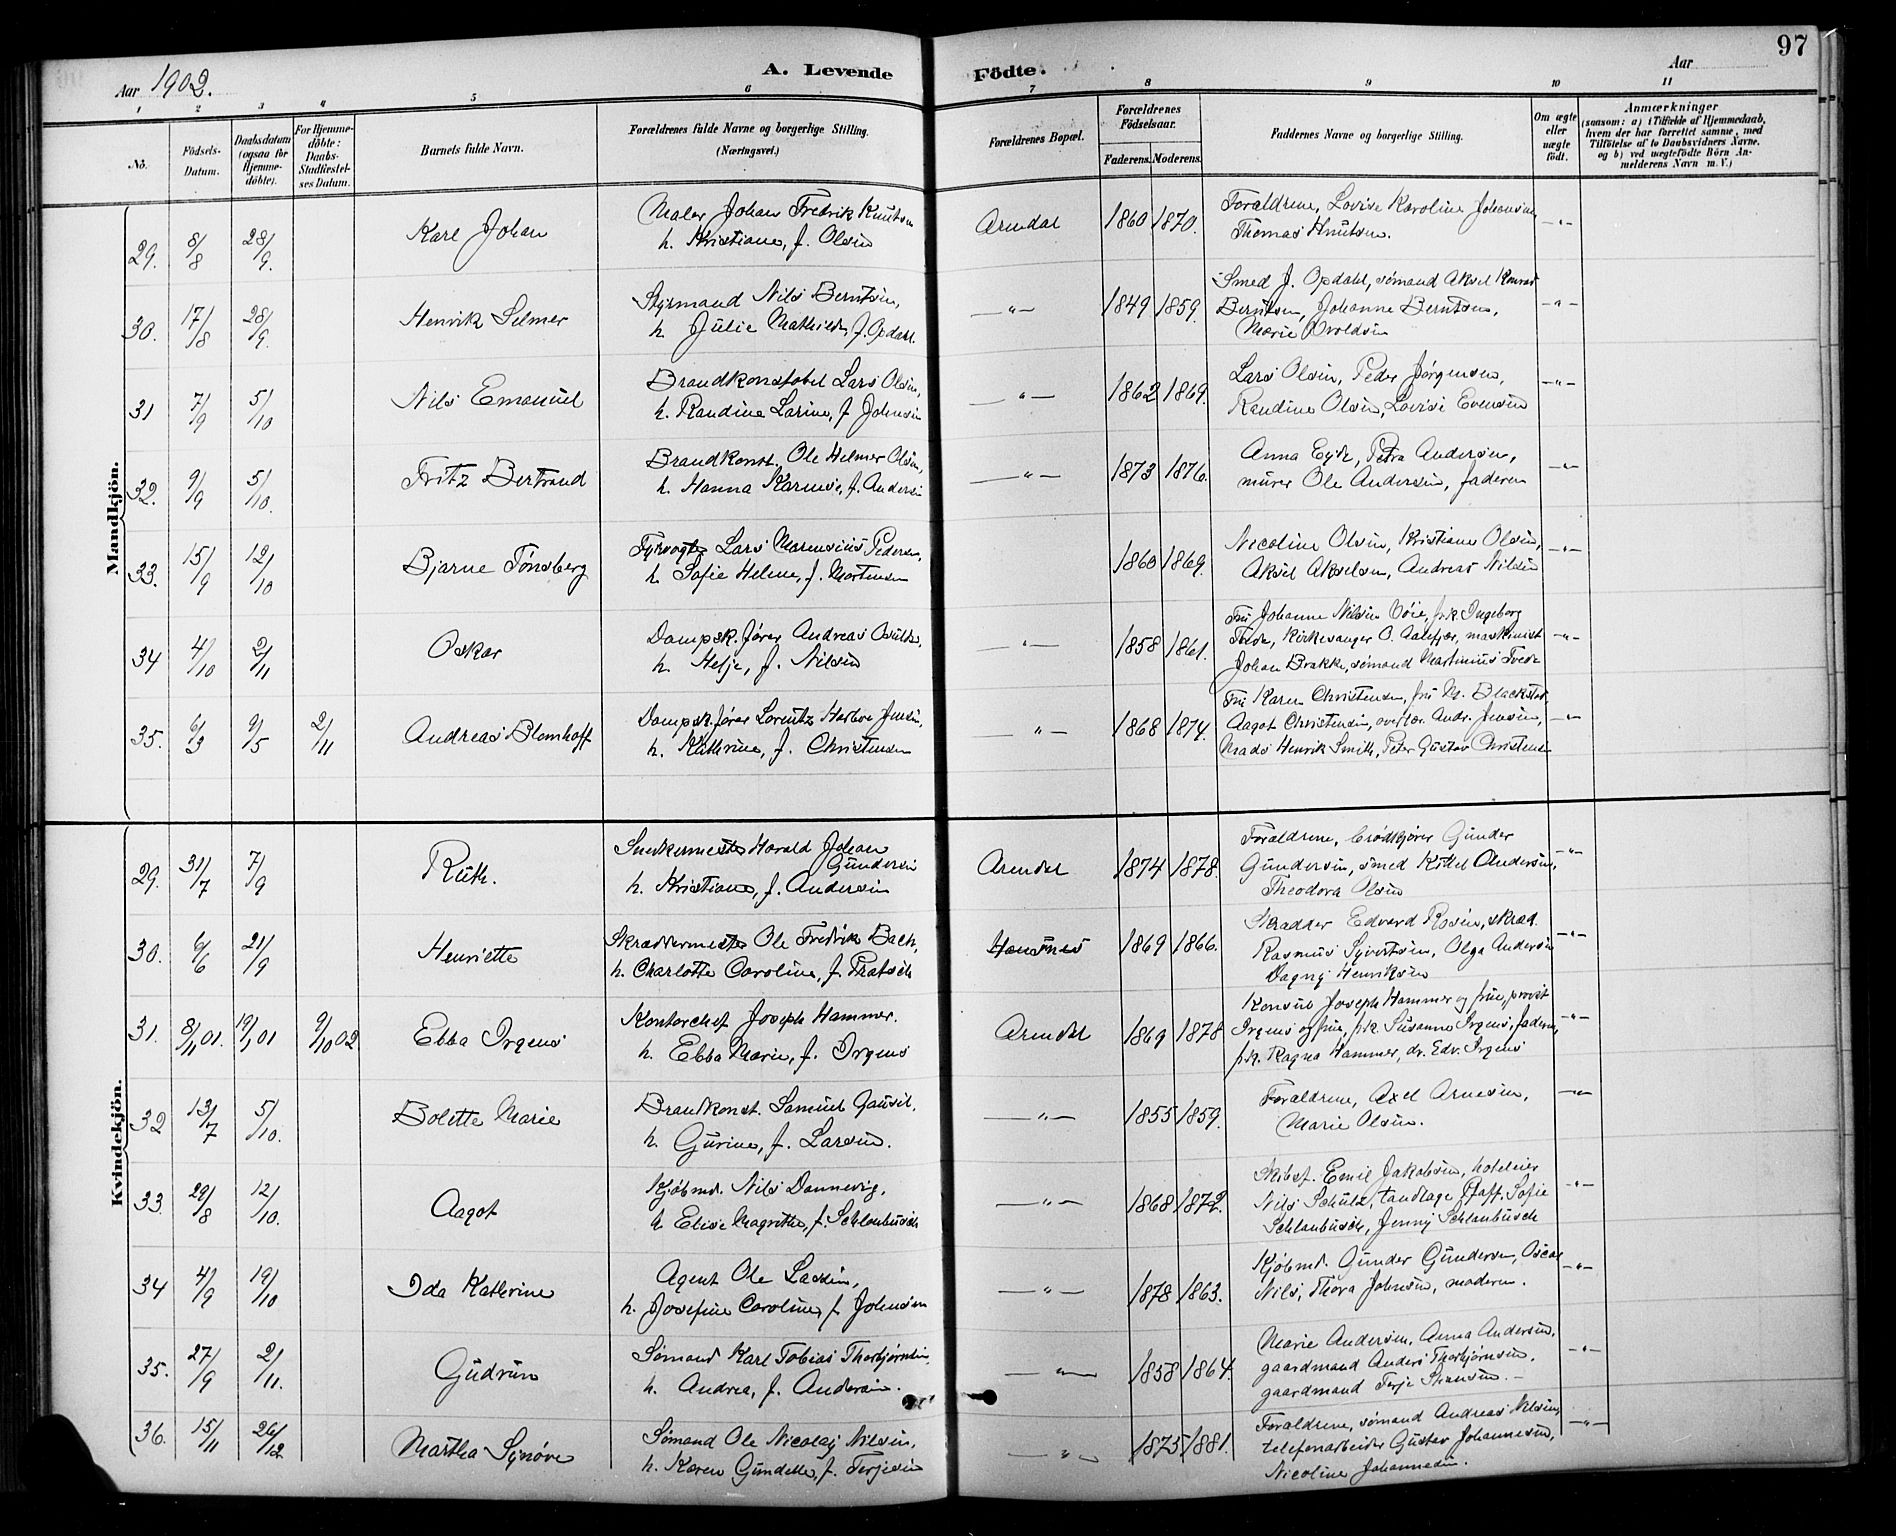 97
Aar 1902.
A. Levende Födte.
Aar
1 2 3 4 5 6 7 8 9 10 11
No.
Födsels-Datum.
Daabsdatum (ogsaa for Hjemme-döbte).
For Hjemme-döbte: Daabs-Stadfæstel-ses Datum.
Barnets fulde Navn.
Forældrenes fulde Navne og borgerlige Stilling. (Næringsvei.)
Forældrenes Bopæl.
Forældrenes Födselsaar.
Faderens. Moderens.
Faddernes Navne og borgerlige Stilling.
Om ægte eller uægte født.
Anmærkninger
(saasom: a) i Tilfælde af Hjemmedaab, hvem der har forrettet samme, med Tilföielse af to Daabsvidners Navne, og b) ved uægtefødte Börn An-melderens Navn m. V.)
Mandkjön.
29. 8/8 28/9. Karl Johan
Maler Johan Fredrik Knutsen
h. Kristiane, f. Olsen
Arendal 1860 1870.
Forældrene, Lovise Karoline Johansen,
Thomas Knutsen. -"-
30. 17/8 28/9. Henrik Selmer
Styrmand Nils Berntsen,
h. Julie Mathilde, f. Opdahl.
-"- 1849 1859.
Smed J. Opdahl, sømand Aksel Konrad
Berntsen, Johanne Berntsen,
Marie -"-
31 7/9 5/10 Nils Emanuel
Brandkonstabel Lars Olsen,
h. Randine Larine, f. Johnsen
-"- 1862 1869.
Lars Olsen, Peder Jørgensen,
Randine Olsen, Lovise Evensen -"-
32. 9/9 5/10. Fritz Bertrand
Brandkonst. Ole Helmer Olsen,
h. Hanna f. Andersen
-"- 1873 1876.
Anna Petra Andersen,
murer Ole Andersen, faderen -"-
33. 15/9 12/10 Bjarne Tønsberg
Fyrvogter Lars Pedersen,
h. Sofie Helene, f. Mortensen
1860 1869.
Nicoline Olsen, Kristiane Olsen,
Aksel Akselsen, Andreas Nilsen -"-
34 4/10 2/11 Oskar
Dampsk.fører Andreas
h. f. Nilsen
-"- 1858 1861.
Fru Johanne Nilsen frk. Ingeborg
kirkesanger O. maskinist
Johan Brække, sømand Martinius Tvede -"-
35. 6/3 9/5 2/11 Andreas Blomhoff
Dampsk.fører Lorentz Herlov Jensen,
h. Kathrine, f. Christensen
-"- 1868 1874.
Fru Karen Christensen, fru M. Blackstad,
Aagot Christensen, overlær. Andr. Jensen,
Mads Henrik Smith, Peter Gustav Christensen -"-
Kvindekjön.
29. 31/7 7/9 Ruth.
Snekkermester Harald Johan
Gundersen
h. Kristiane, f. Andersen
Arendal 1874 1878.
Forældrene, brødkjører Gunder
Gundersen, smed Kittel Andersen,
Theodora Olsen -"-
30. 6/6 21/9 Henriette
Skræddermester Ole Fredrik Bach,
h. Charlotte Caroline, f.
1869 1866.
Skrædder Edvard Rosen, skræd.
Rasmus Syvertsen, Olga Andersen
Dagny Henriksen -"-
31. 8/11 01. 19/1 01 9/10 02 Ebba Irgens
Kontorchef Joseph Hammer.
h. Ebba Marie, f. Irgens
Arendal 1869 1878
Konsul Joseph Hammer og frue, provst
Irgens og frue, frk. Susanne Irgens, faderen,
frk. Ragna Hammer, dr. Edv. Irgens -"-
32 13/7 5/10. Bolette Marie
Brandkonst. Samuel Gausel,
h. Gurine, f. Larsen.
-"- 1855 1859.
Forældrene, Axel Arnesen,
Marie Olsen. -"-
33. 29/8 12/10. Aagot
Kjøbmd. Nils Dannevig,
h. Elise Magrethe, f. Schlanbusch
-"- 1868 1872.
Skibsf. Emil Jakobsen, hoteleier
Nils Schultz, tandlæge Pfaff, Sofie
Schlanbusch, Jenny Schlanbusch -"-
34 4/9 19/10 Ida Kathrine
Agent Ole Lassen,
h. Josefine Caroline, f. Johnsen
-"- 1878 1863.
Kjøbmd. Gunder Gundersen, Oscar
Nils, Thora Johnsen, moderen. -"-
35. 27/9 2/11. Gudrun
Sømand Karl Tobias Thorbjørnsen,
h. Andrea, f. Andersen.
-"- 1858 1864.
Marie Andersen, Anna Andersen,
gaardmand Anders Thorbjørnsen,
gaardmand Terje -"-
36. 15/11 26/12 Martha Synøve
Sømand Ole Nicolay Nilsen,
h. Karen Gundelle, f. Terjesen
-"- 1875 1881.
Forældrene, sømand Andreas Nilsen,
telefonarbeider Gustav Johannesen,
Nicoline Johannesen. -"-